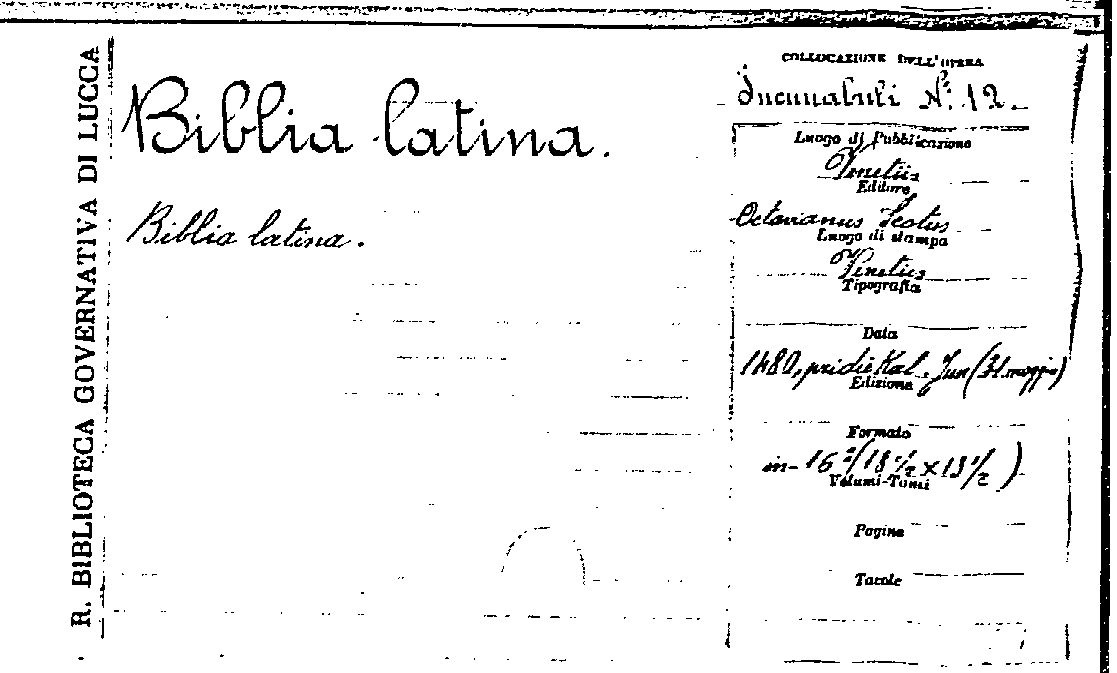 R. BIBLIOTECA GOVERNATIVA DI LUCCA
Biblia latina.
Biblia latina.
COLLOCAZIONE DELL'OPERA
Incunabuli N.º 12.
Luogo di Pubblicazione
Venetiis
Editore
Octavianus Scotus
Luogo di stampa
Venetiis
Tipografia
Data
1480, pridie Kal. Jun (31 maggio)
Edizione
Formato
in-16º (18 1/2 x 13 1/2)
Volumi-Tomi
Pagine
Tavole